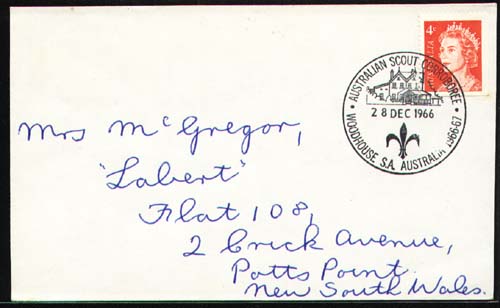 4c
AUSTRALIA
AUSTRALIAN SCOUT CORROBOREE
28 DEC 1966
WOODHOUSE S.A. AUSTRALIA 1966-67
Mrs McGregor,
"Labert"
Flat 108,
2 Crick Avenue,
Potts Point
New South Wales.